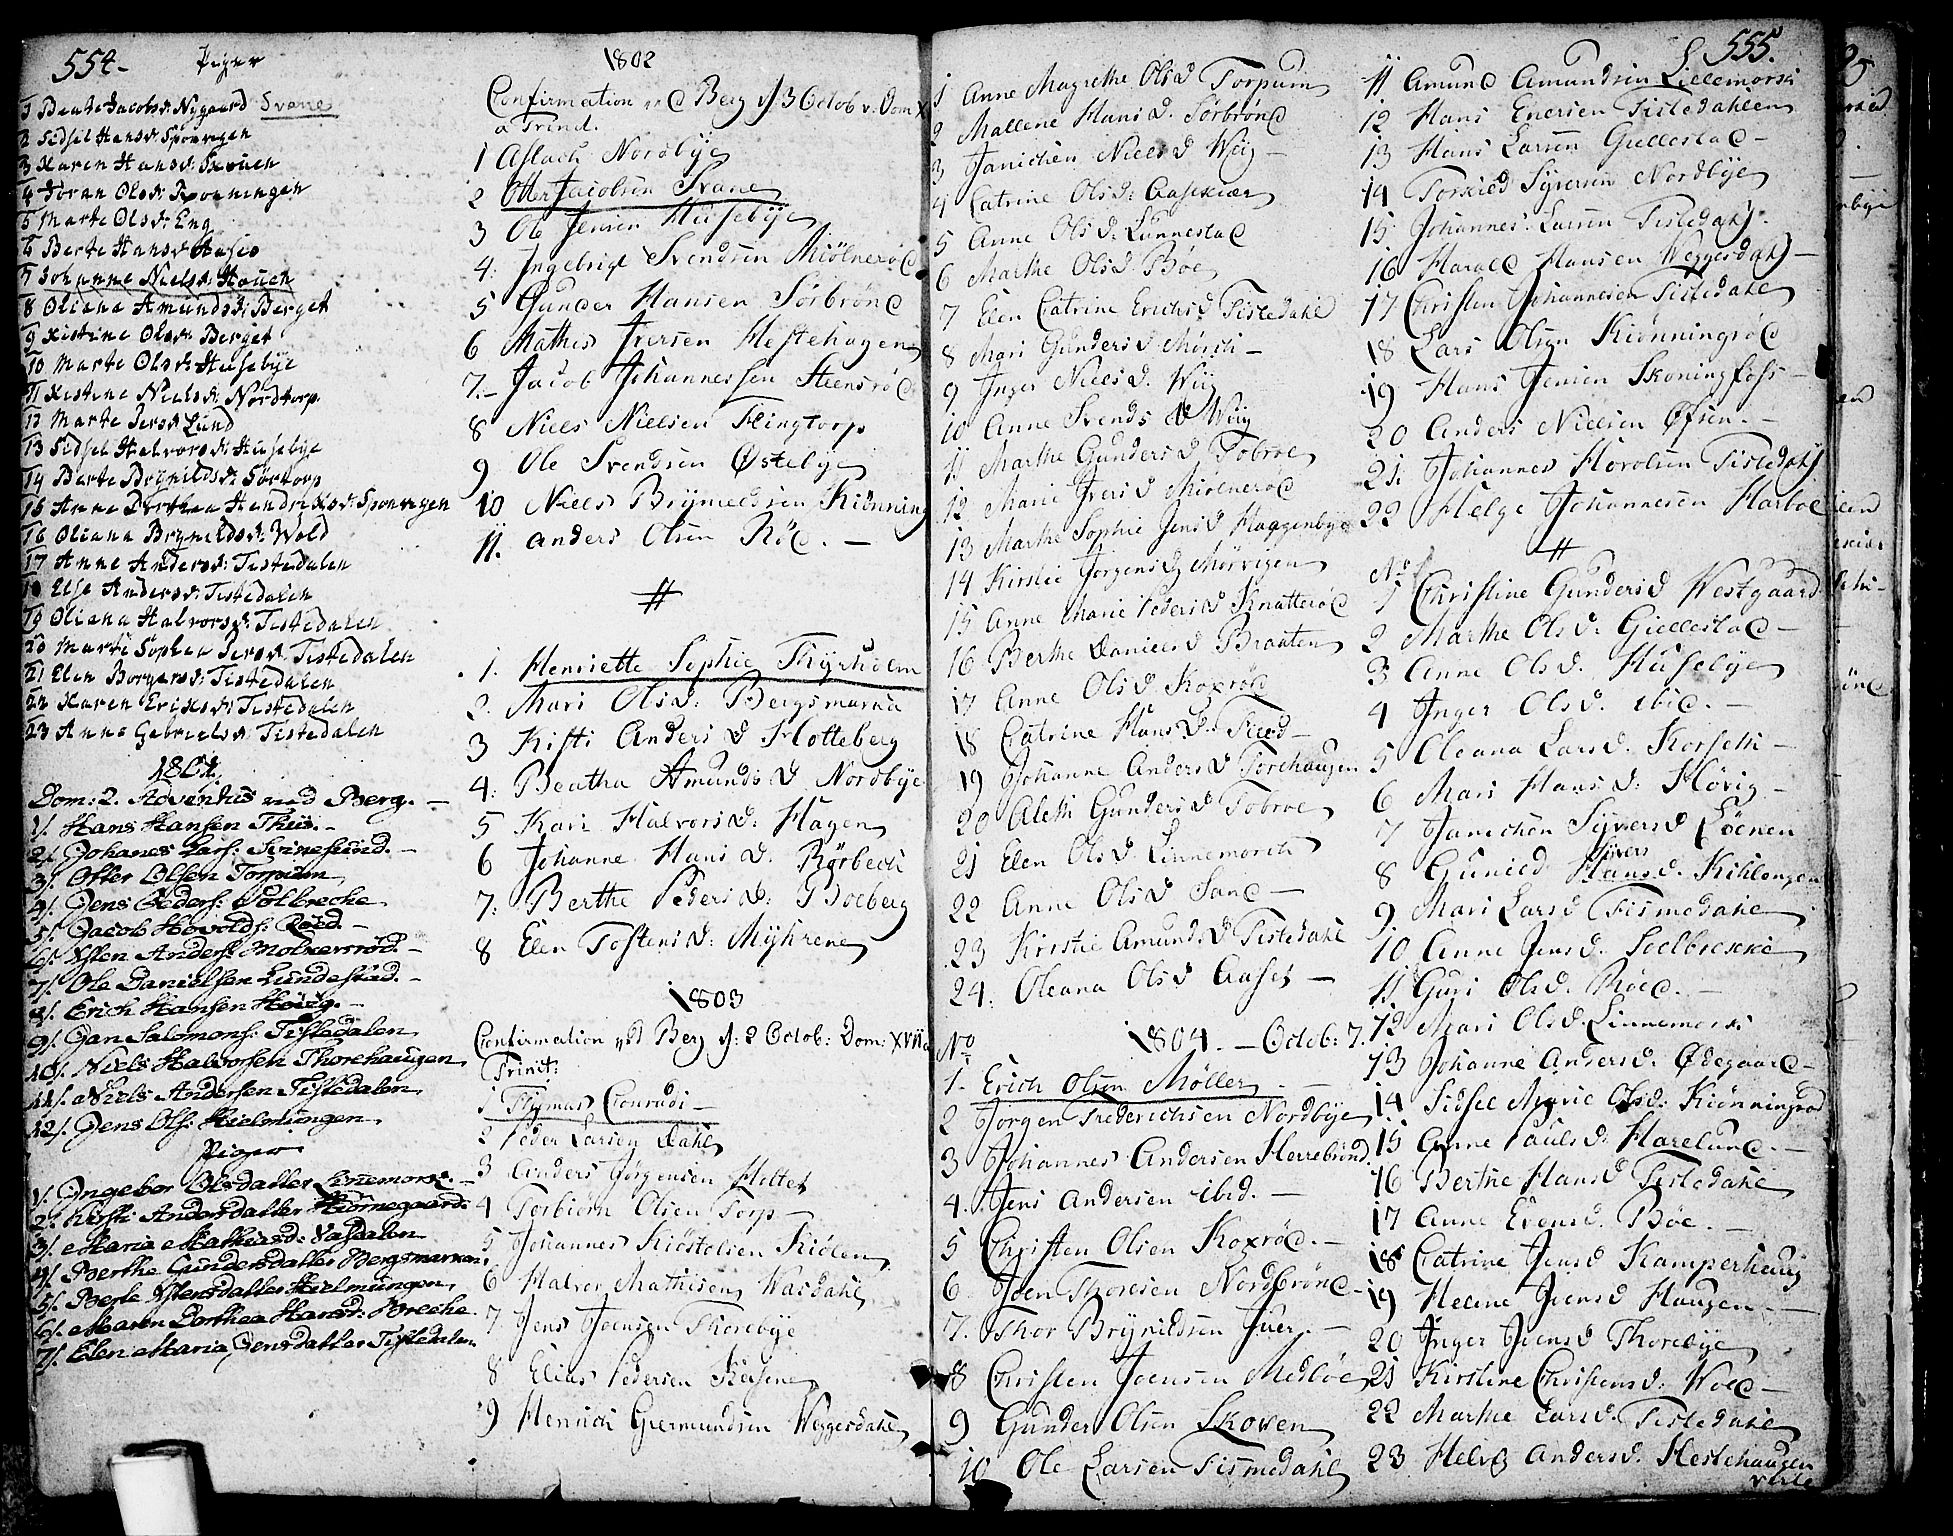 554.
Piger
1 Beate Jacobsd: Nygaard Svane
2 Sidsel Hansd: Sponvigen
3 Karen Hansd:
4 Joran Olsd: Rønningen
5 Marte Olsd: Eng
6 Berte Hansd:
7 Johanne Nielsd: Houch
8 Oliana Amundsd: Berget
9 Kistine Olsd: Berget
10 Marte Olsd: Husebye
11 Kistine Nielsd: Nordtorp
12 Marte Persd Lund
13 Sidsel Halvorsd: Husebye
14 Berte Brynildsd: Sørtorp
15 Anne Dorthea Hendrixsd: Sponvigen
16 Oliana Brynildsd: Wold
17 Anne Andersd: Tistedalen
18 Else Andersd: Tistedalen
19 Oliana Halvorsd: Tistedalen
20 Marte Sophia Persd: Tistedalen
21 Elen Borgersd: Tistedalen
22 Karen Eriksd: Tistedalen
23 Anne Gabrielsd: Tistedalen
1801.
Dom: 2. Adventus ved Berg. -
1/. Hans Hansen Thiis. -
2/. Johanes Lars: Svinesund. -
3/. Otter Olsen Torpum
4/. Jens Peders: Solbreche
5/. Jacob Hovolds: Røed. -
6/. Iften Anders: Molnerrød. -
7/. Ole Danielsen Lundestad. -
8/. Erich Hansen Høvig. -
9/. Jan Salomons: Tistedalen
10/. Niels Halvorsen Thorehaugen
11/. Niels Andersen Tistedalen
12/. Jens Ols: Hielmungen
Piger
1/. Ingebor Olsdatter Linnemorse. -
2/. Kirsti Andersdatter Hiørnegaard.
3/. Maria Mathiesd: Vasdalen
4/. Berthe Gundersdatter Bergsmarken.
5/. Berte Iftensdatter Hielmungen
6/. Maren Dorthea Hansd: Breche
7/. Elen Maria Jensdatter Tistedalen
1802
Confirmation ved Berg d/ 3 Octob v. Dom X
a Trind.
1 Aslach Nordbye
2 Otter Jacobsen Svane
3 Ole Jensen Husebye
4: Ingebrigt Svendsen Miølnerød
5 Gunder Hansen Sørbrønd
6 Mathis Iversen Hestehagen
7. - Jacob Johannessen Steensrød
8 Niels Nielsen Flingtorp
9 Ole Svendsen Østebye
10 Niels Brynnildsen Kiønning
11. Anders Olsen Røed. -
#
1. Henriette Sophie Thyrholm
2. Mari Olsd: Bergsmarch
3 Kisti Andersd Holteberg
4: Beatha Amundsd Nordbye
5 Kari Halvorsd: Hagen
6 Johanne Hansd: Rørbech
7: Berthe Pedersd: Boeberg
8 Elen Tostensd: Myhrene
1803
Confirmation ved Berg d: 2 Octob: Dom: XVII a
Trinit:
1 Thomas Conradi -
2 Peder Larsen Dahl
3 Anders Jørgensen Holtet
4 Torbiørn Olsen Torp -
5 Johannes Kiøstolsen Kiølen
6 Halvor Mathisen Wasdahl
7 Jens Joensen Thorebye
8 Elias Pedersen
9 Henrich Giermundsen Weggesdahl
555.
1 Anne Magrethe Olsd Torpum
2 Mallene Hansd. Sørbrønd
3 Janichen Nielsd Wiig -
4 Catrine Olsd: Aasekiær
5 Anne Olsd: Lunnestad
6 Marthe Olsd Bøe
7 Elen Catrine Erichsd Tistedahl
8 Mari Gundersd Mørch -
9 Inger Nielsd. Wiig
10 Anne Svendsd Wiig
11 Marthe Gundersd Tobroe
12 Marie Iversd Miølnerød
13 Marthe Sophie Jensd Haggenbye
14 Kirstie Jørgensd Mørvigen
15 Anne Marie Pedersd Knatterød
16 Berthe Danielsd Braaten
17 Anne Olsd Koxrød
18 Catrine Hansd. Tued -
19 Johanne Andersd Torehaugen
20 Aleth Gundersd Tobroe
21 Elen Olsd Linnemorch
22 Anne Olsd Sand -
23 Kirstie Amundsd Tistedahl
24: Oleana Olsd Aaset -
1804. - Octob: 7.
No
1. Erich Olsen Møller. -
2 Jørgen Frederichsen Nordbye
3 Johannes Andersen Herrebrønd
4. Jens Andersen ibid. -
5 Christen Olsen Koxrød. -
6 Joen Thoresen Nordbrønd -
7. Thor Brynildsen Juer. -
8 Christen Joensen Medbøe
9 Gunder Olsen Skoven
10 Ole Larsen Tismedahl
11 Amund Amundsen Lillemorsk
12 Hans Enersen Tistedahlen
13 Hans Larsen Giellestad -
14 Torkild Syversen Nordbye
15 Johannes Larsen Tistedahl.
16 Harald Hansen Weggesdahl -
17 Christen Johannesen Tistedahl
18 Lars Olsen Kiønningrød
19 Hans Jensen Skoningfoss -
20 Anders Nielsen Øfsen. -
21: Johannes Hovolsen Tistedahl
22 Helge Johannesen Harboe
#
No
1 Christine Gundersd Westgaard
2 Marthe Olsd: Giellestad -
3 Anne Olsd. Husebye
4 Inger Olsd. ibid. -
5 Oleana Larsd. Korseth -
6 Mari Hansd: Høvig -
7 Janichen Syversd Löenen
Syvers
8 Gunild Hansd. Kihlengen
9. Mari Larsd Tismedahl
10 Anne Jensd. Soelbrekke
11 Guri Olsd. Røed. -
12 Mari Olsd. Linnemorsk
13 Johanne Andersd. Ødegaard -
14 Sidsel Marie Olsd: Kiønningrød
15 Anne Paulsd: Harelund. -
16 Berthe Hansd Tistedahl
17 Anne Evensd. Bøe. -
18 Catrine Jensd Kamperhaug
19 Helene Joensd Haugen. -
20 Inger Joensd Thorebye
21 Kirstine Christensd: Woed -
22 Marthe Larsd. Tistedahl
23 Helvig Andersd. Hestehaugen
verte